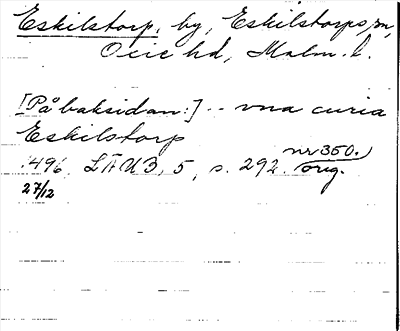 Eskilstorp, by, Eskilstorps sn,
Oxie hd, Malm. l.
[På baksidan:] -- vna curia
Eskilstorp
1496 LÄUB, 5, s. 292. nr 350. orig.
27/12